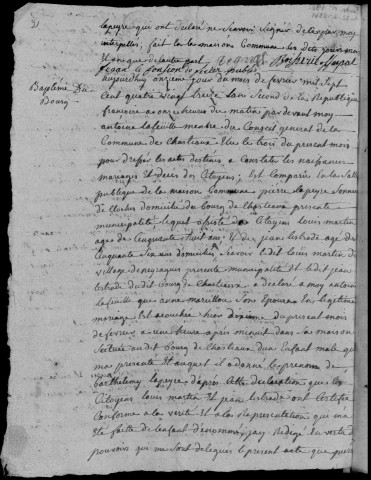 lapeyre qui ont déclaré ne scavoir signer de ce par moy
interpellés, fait en la maison Commune les dits jour mois
et an que d'autre part
faisant la fonction d'officier public
Baptême Du
Bourg
aujourdhuy onzieme jour du mois de fevrier mil sept
cent quatre vingt treize l'an second de la Republique
françoise a onze heures du matin par devant moy
antoine lafeuille membre du Conseil general de la
Commune de Chasteaux Elu le trois du present mois
pour dresser les actes destinés a Constater les naissances
mariages et deces des Citoyens, Est Comparû en la Salle
publique de la maison Commune pierre lapeyre Sonneur
de Cloches domicilié du bourg de Chasteaux presente
municipalité lequel assisté des Citoyens louis martin
agé de Cinquante huit ans, Et de jean lestrade agé de
Cinquante six ans domiciliés, scavoir ledit louis martin du
village de presente municipalité et ledit jean
lestrade du dit bourg de Chasteaux, a déclaré a moy antoine
lafeuille que anne marillou son Epouse en legitime
mariage Est accouchée hier dixieme du present mois
de fevrier a une heure après minuit dans sa maison
Scituée au dit bourg de Chasteaux d'un Enfant male qui
ma presenté Et auquel il a donné le prenom de
barthelemy lapeyre, d'après cette déclaration que les
Citoyens louis martin Et jean lestrade ont Certifié
Conforme a la verité Et a la representation qui ma
Eté faitte de l'enfant denommé, jay Redigé En vertu
pouvoirs qui me sont delegués le present acte que pierre